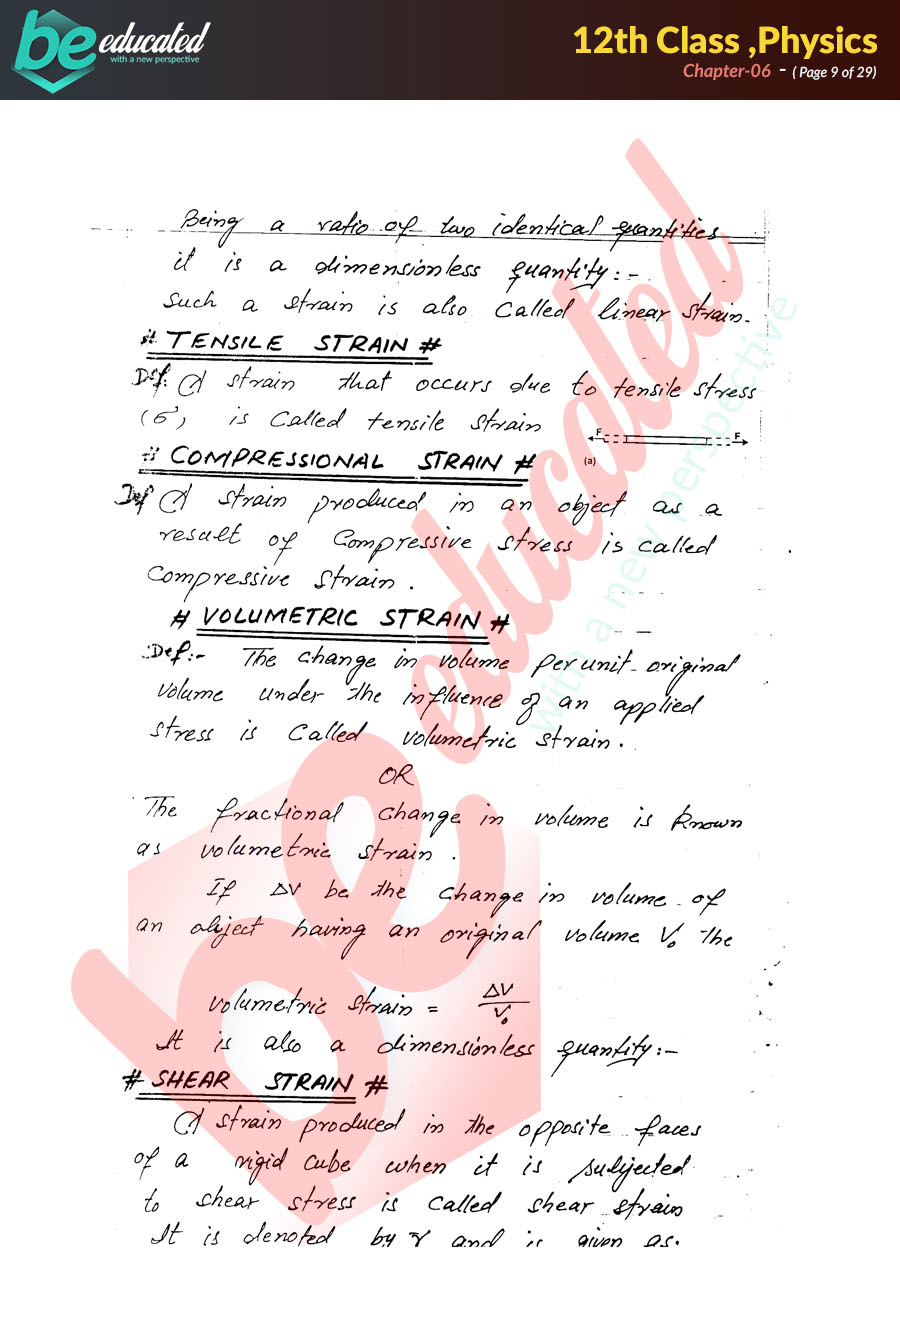 be educated
with a new perspective
12th Class ,Physics
Chapter-06 - ( Page 9 of 29)
Being a ratio of two identical quantities
it is a dimensionless quantity:-
Such a strain is also Called linear strain.
# TENSILE STRAIN #
Def: A strain that occurs due to tensile stress
(σ) is Called tensile strain
F F
(a)
# COMPRESSIONAL STRAIN #
Def A strain produced in an object as a
result of Compressive stress is called
Compressive strain.
# VOLUMETRIC STRAIN #
Def:- The change in volume per unit original
volume under the influence of an applied
stress is Called volumetric strain.
OR
The fractional change in volume is known
as volumetric strain.
If ΔV be the change in volume of
an object having an original volume V₀ the
volumetric strain = ΔV/V₀
It is also a dimensionless quantity:-
# SHEAR STRAIN #
A strain produced in the opposite faces
of a rigid cube when it is subjected
to shear stress is called shear strain
It is denoted by γ and is given as.
be educated
with a new perspective